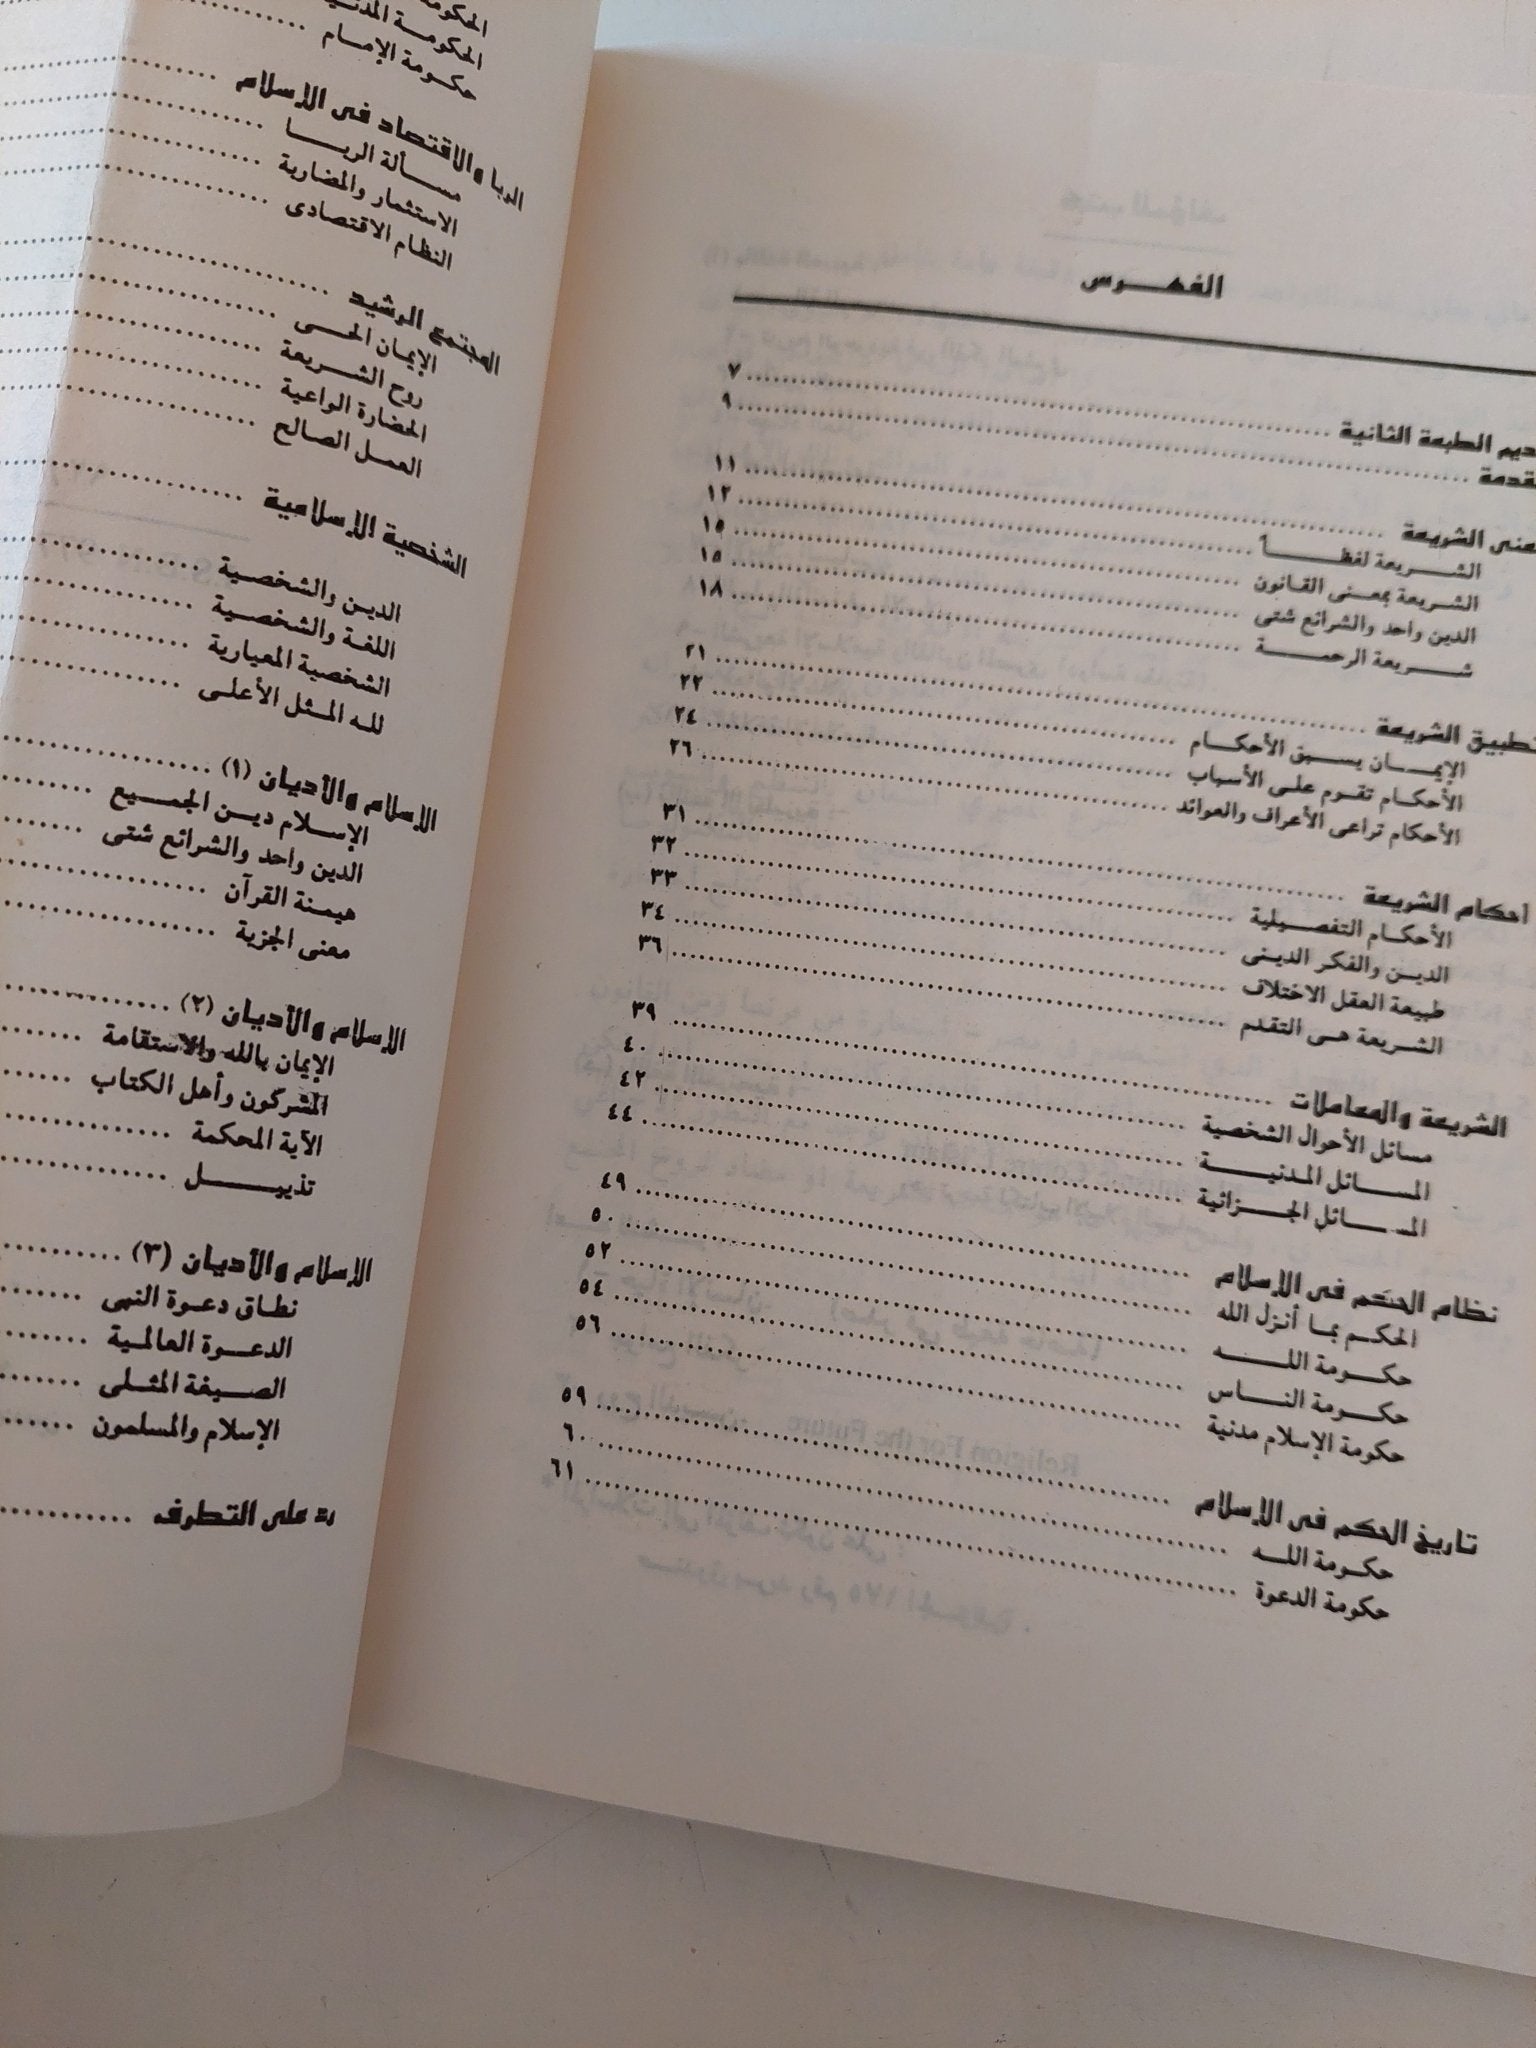 الفهرس
ديم الطبعة الثانية ........ ٧
قدمة ........ ٩
عنى الشريعة ........ ١١
الشريعة لفظاً ........ ١٢
الشريعة بمعنى القانون ........ ١٥
الدين واحد والشرائع شتى ........ ١٥
شريعة الرحمة ........ ١٨
تطبيق الشريعة ........ ٢١
الإيمان يسبق الأحكام ........ ٢٢
الأحكام تقوم على الأسباب ........ ٢٤
الأحكام تراعى الأعراف والعوائد ........ ٢٦
أحكام الشريعة ........ ٣١
الأحكام التفصيلية ........ ٣٢
الدين والفكر الدينى ........ ٣٣
طبيعة العقل الاختلاف ........ ٣٤
الشريعة هى التقدم ........ ٣٦
الشريعة والمعاملات ........ ٣٩
مسائل الأحوال الشخصية ........ ٤٠
المسائل المدنية ........ ٤٢
المسائل الجزائية ........ ٤٤
نظام الحكم فى الإسلام ........ ٤٩
الحكم بما أنزل الله ........ ٥٠
حكومة الله ........ ٥٢
حكومة الناس ........ ٥٤
حكومة الإسلام مدنية ........ ٥٦
تاريخ الحكم فى الإسلام ........ ٥٩
حكومة الله ........ ٦٠
حكومة الدعوة ........ ٦١
الحكومة
الحكومة المدنية
حكومة الإمام ........
الربا والاقتصاد فى الإسلام ........
مسألة الربا ........
الاستثمار والمضاربة ........
النظام الاقتصادى ........
المجتمع الرشيد ........
الإيمان الحى ........
روح الشريعة ........
الحضارة الواعية ........
العمل الصالح ........
الشخصية الإسلامية ........
الدين والشخصية ........
اللغة والشخصية ........
الشخصية المعيارية ........
لله المثل الأعلى ........
الإسلام والأديان (١) ........
الإسلام دين الجميع ........
الدين واحد والشرائع شتى ........
هيمنة القرآن ........
معنى الجزية ........
الإسلام والأديان (٢) ........
الإيمان بالله والاستقامة ........
المشركون وأهل الكتاب ........
الآية المحكمة ........
تذييل ........
الإسلام والأديان (٣) ........
نطاق دعوة النبى ........
الدعوة العالمية ........
الصيغة المثلى ........
الإسلام والمسلمون ........
رد على التطرف ........